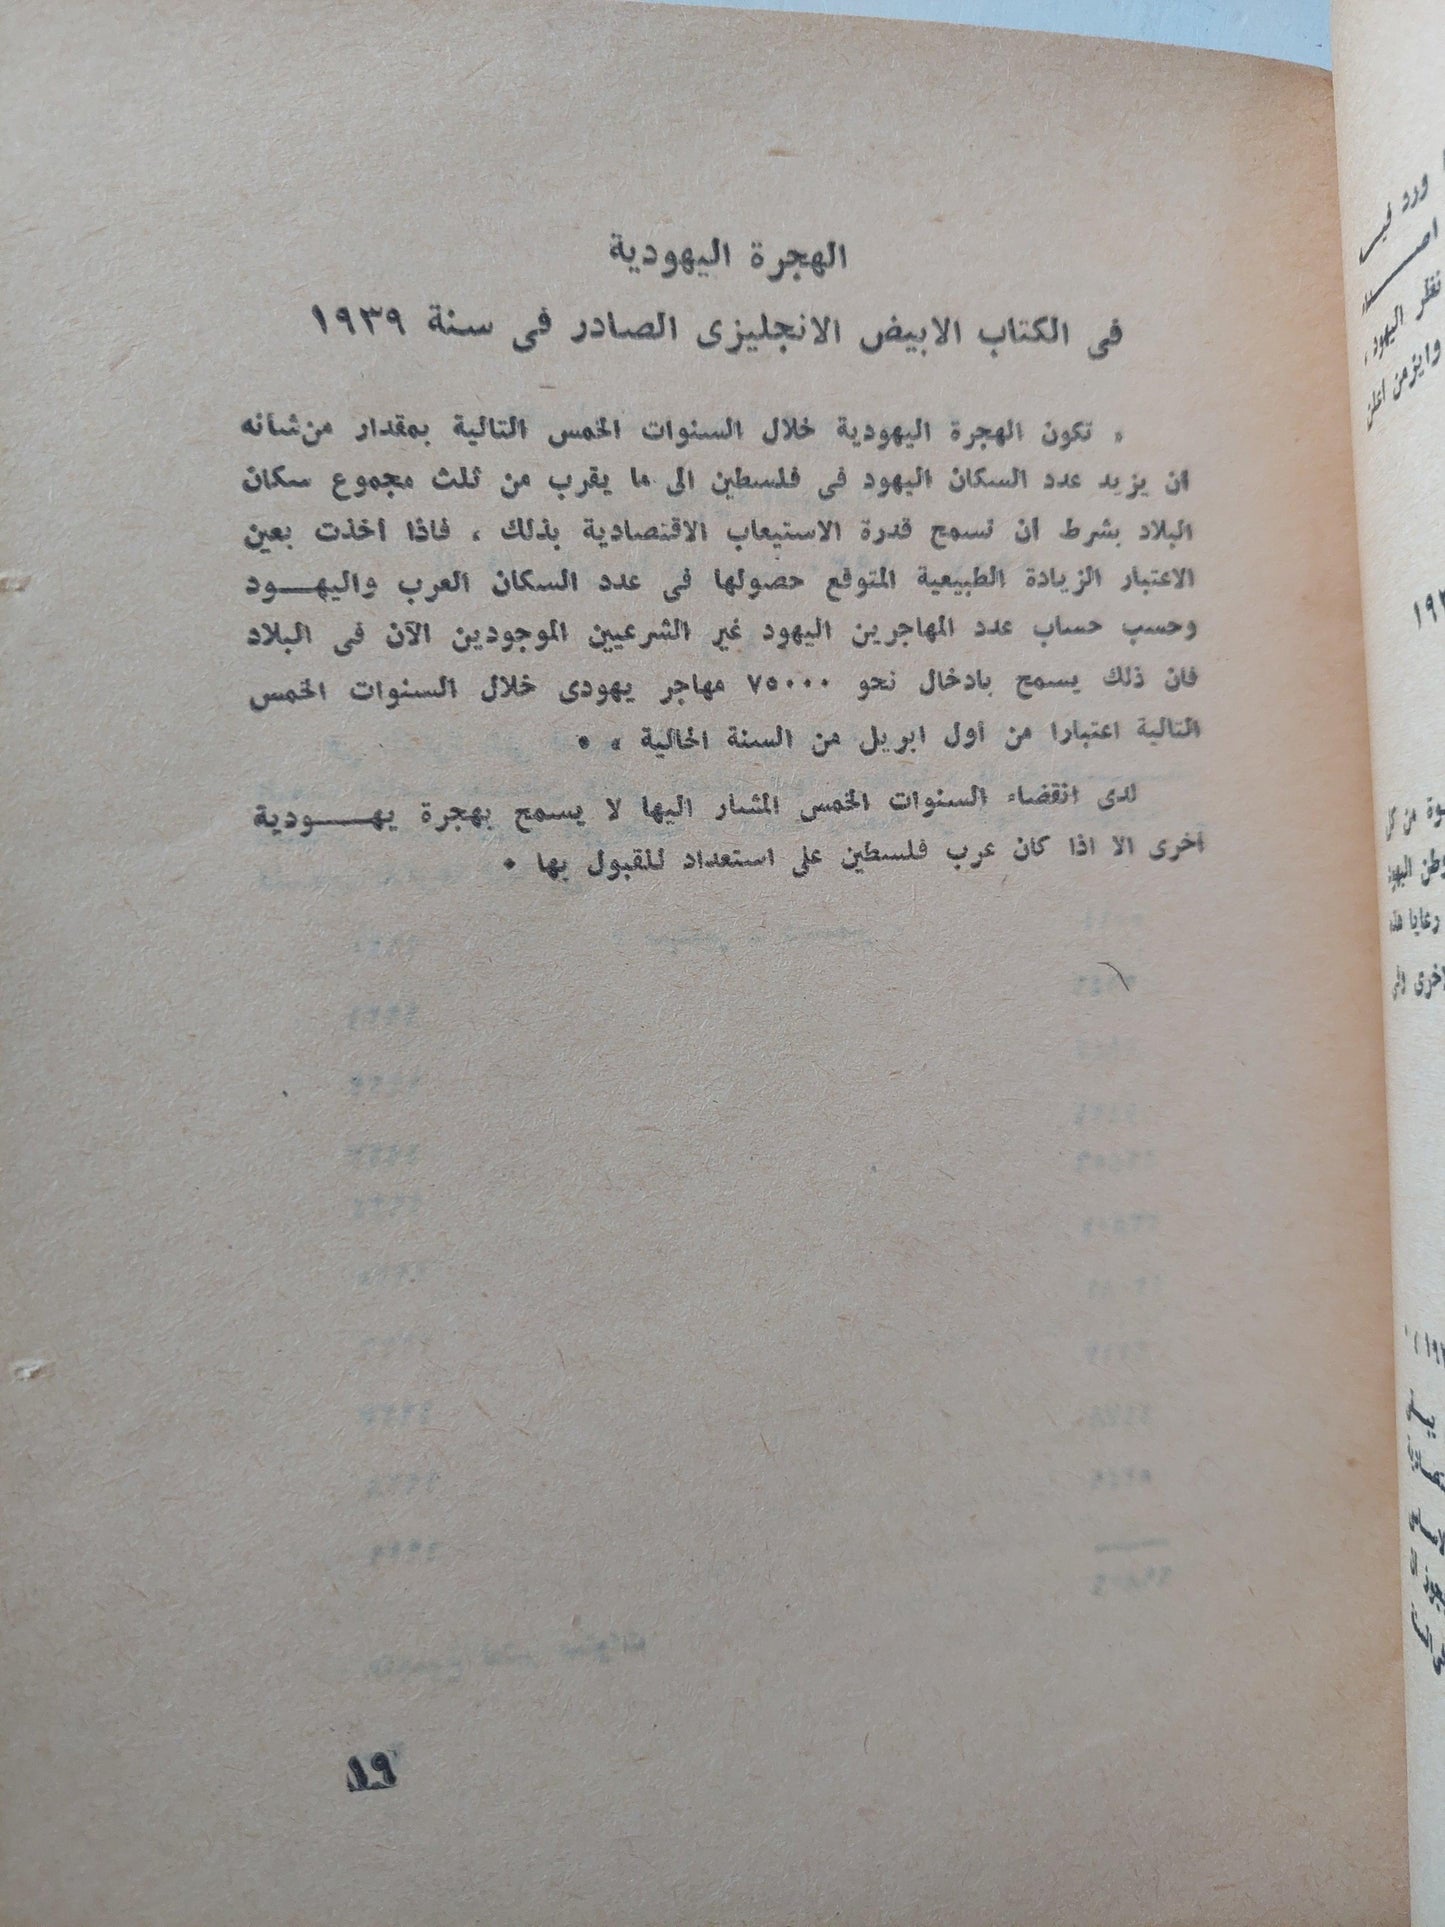 الهجرة اليهودية
فى الكتاب الابيض الانجليزى الصادر فى سنة ١٩٣٩
« تكون الهجرة اليهودية خلال السنوات الخمس التالية بمقدار من شأنه
أن يزيد عدد السكان اليهود فى فلسطين الى ما يقرب من ثلث مجموع سكان
البلاد بشرط أن تسمح قدرة الاستيعاب الاقتصادية بذلك ، فاذا أخذت بعين
الاعتبار الزيادة الطبيعية المتوقع حصولها فى عدد السكان العرب واليهـــود
وحسب حساب عدد المهاجرين اليهود غير الشرعيين الموجودين الآن فى البلاد
فان ذلك يسمح بادخال نحو ٧٥٠٠٠ مهاجر يهودى خلال السنوات الخمس
التالية اعتبارا من أول ابريل من السنة الحالية » •
لدى انقضاء السنوات الخمس المشار اليها لا يسمح بهجرة يهـــودية
أخرى الا اذا كان عرب فلسطين على استعداد للقبول بها •
١٩
ورد فيـــا
نظر اليهود ،
وايزمن اعلن
من كل
وطن اليهود
رعايا هذه